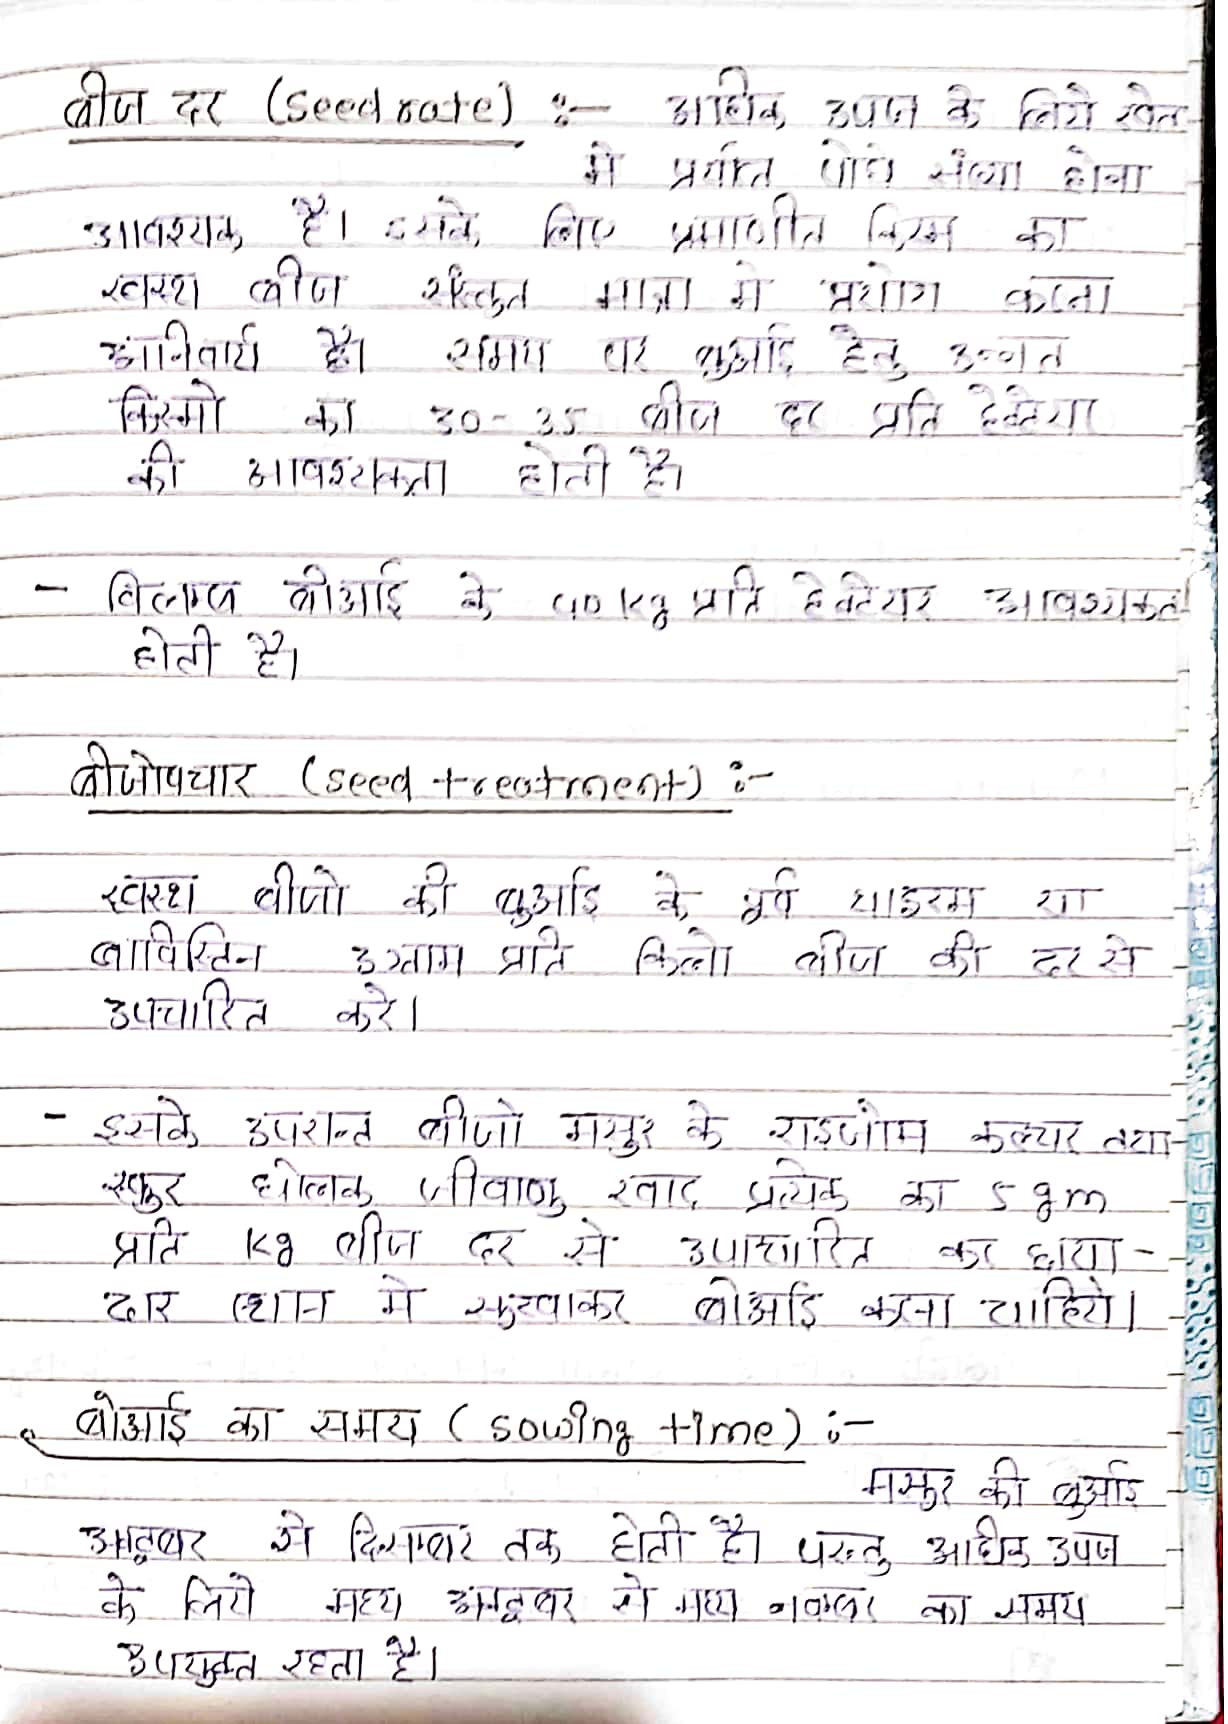 बीज दर (Seed rate) :- अधिक उपज के लिये खेत
मे प्रर्याप्त पोधे संख्या होना
आवश्यक है। इसके लिए प्रमाणीत किस्म का
स्वस्थ बीज संस्कृत मात्रा मे प्रयोग करना
अनिवार्य है। समय पर बुआई हेतु उन्नत
किस्मो का 30-35 बीज दर प्रति हेक्टेयर
की आवश्यकता होती है।
- विलम्ब बोआई के 40 kg प्रति हेक्टेयर आवश्यकता
होती है।
बीजोपचार (seed treatment) :-
स्वस्थ बीजो की बुआई के पूर्व थाइरम या
बाविस्टिन 3 ग्राम प्रति किलो बीज की दर से
उपचारित करे।
- इसके उपरान्त बीजो मसुर के राइजोम कल्चर तथा
स्फुर घोलक जीवाणु खाद प्रत्येक का 5 gm
प्रति kg बीज दर से उपाचारित कर छाया-
दार स्थान मे सुखाकर बोआई करना चाहिये।
बोआई का समय (sowing time) :-
मसुर की बुआई
अक्टूबर से दिसम्बर तक होती है। परन्तु अधिक उपज
के लिये मध्य अक्टूबर से मध्य नवम्बर का समय
उपयुक्त रहता है।